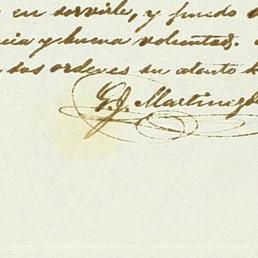 en servirle, y puedo
y buena voluntad.
sus ordenes su atento
G. J. Martinez